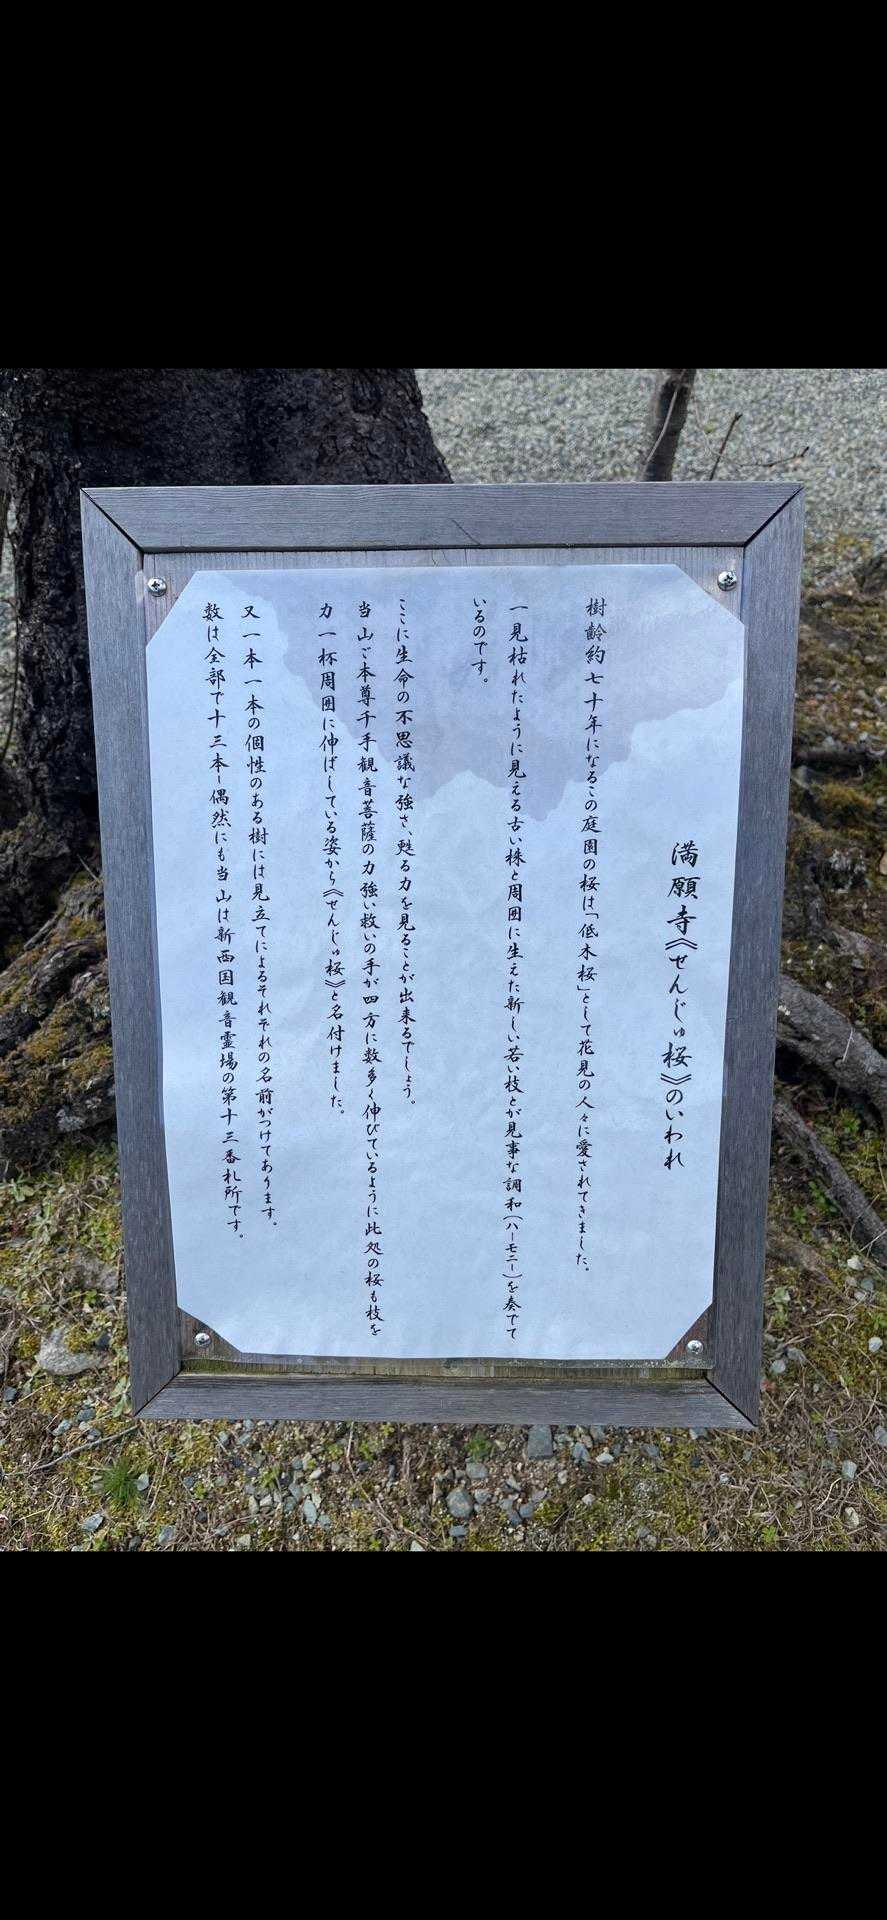 満願寺《せんじゅ桜》のいわれ
樹齢約七十年になるこの庭園の桜は「低木桜」として花見の人々に愛されてきました。
一見枯れたように見える古い株と周囲に生えた新しい若い枝とが見事な調和(ハーモニー)を奏でて
いるのです。
ここに生命の不思議な強さ、甦る力を見ることが出来るでしょう。
当山ご本尊千手観音菩薩の力強い救いの手が四方に数多く伸びているように此処の桜も枝を
力一杯周囲に伸ばしている姿から《せんじゅ桜》と名付けました。
又一本一本の個性のある樹には見立てによるそれぞれの名前がつけてあります。
数は全部で十三本-偶然にも当山は新西国観音霊場の第十三番札所です。